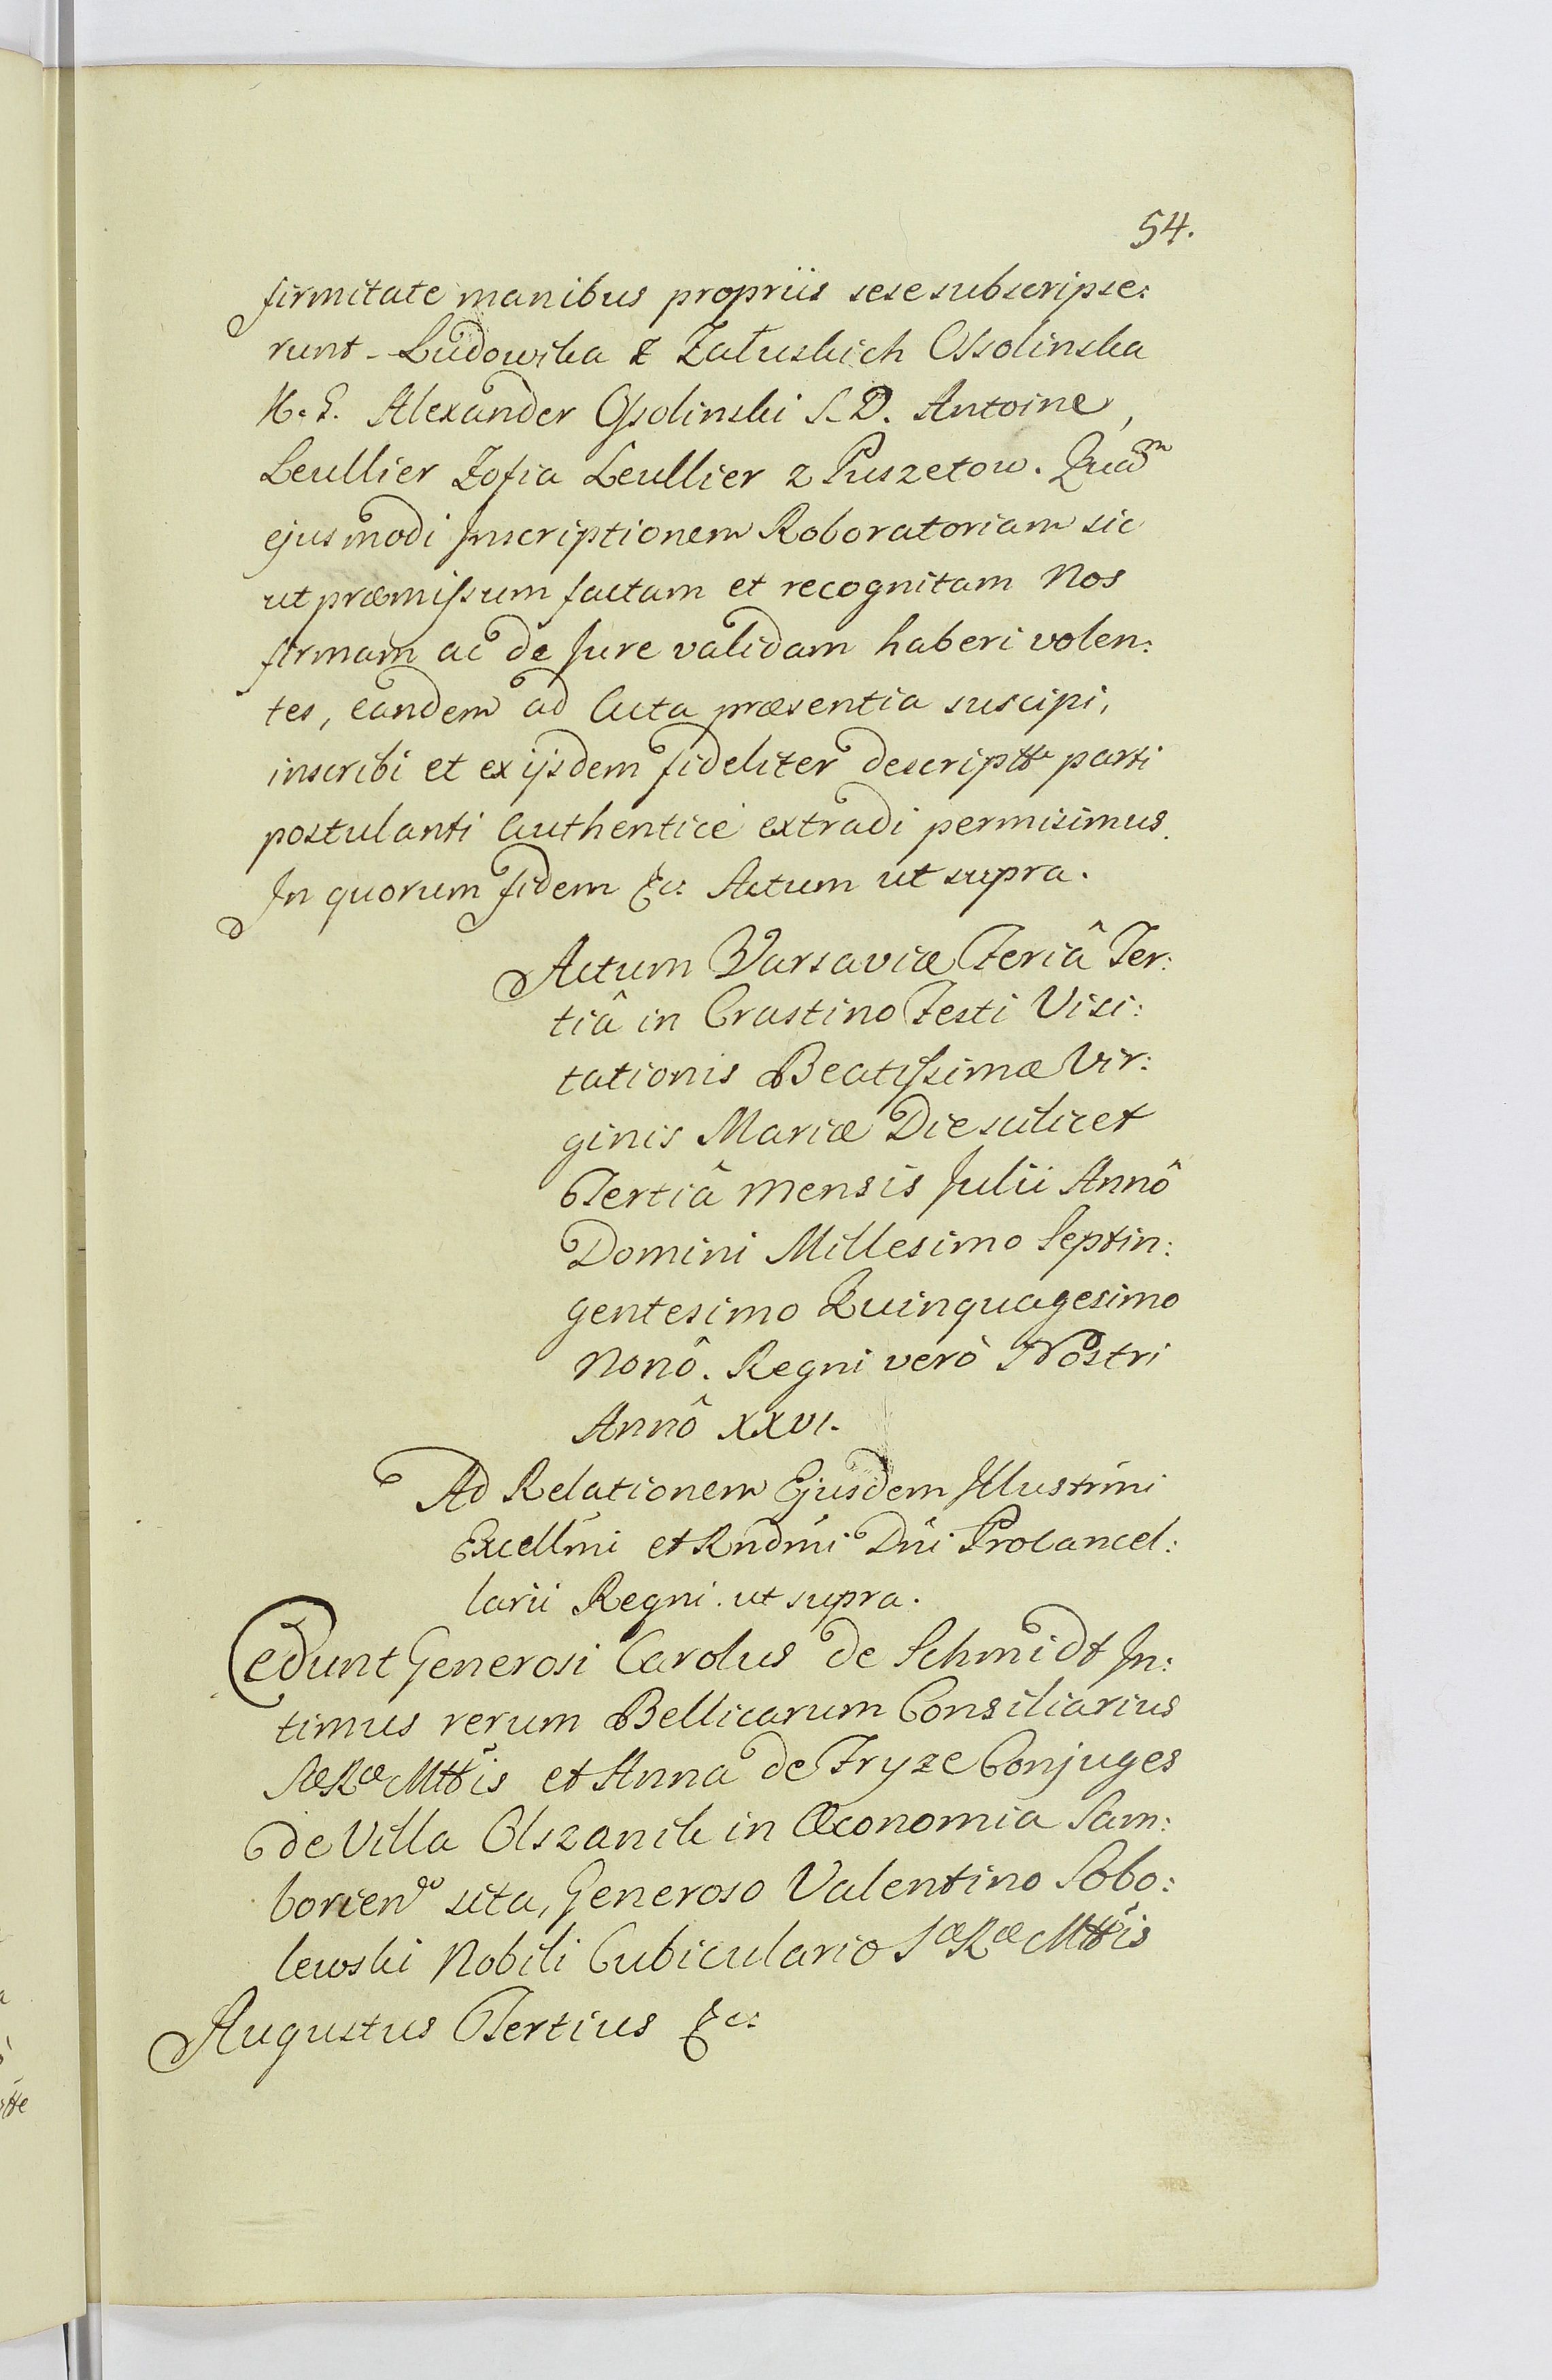 54.
firmitate manibus propriis sese subscripse:
runt - Ludowika Z Załuskich Ossolinska
Alexander Ossolinski S. D. Antoine,
Leullier Zofia Leullier z Puszetow. Quam
ejusmodi Inscriptionem Roboratoriam sic
ut præmissum factam et recognitam Nos
firmam ac de Jure validam haberi volen:
tes, eandem ad Acta præsentia suscipi,
inscribi et ex ijsdem fideliter descriptte parti
postulanti Authenticè extradi permisimus.
In quorum fidem &c: Actum ut supra.
Actum Varsaviæ Feriâ Ter:
tiâ in Crastino Festi Visi:
tationis Beatissimæ Vir:
ginis Mariæ Die scilicet
Tertiâ Mensis Julii Annô
Domini Millesimo Septin:
gentesimo Quinquagesimo
Nonô. Regni verò Nostri
Annô XXVI.
Ad Relationem Ejusdem Illustrmi
Excellmi et Rndmi Dni Procancel:
larii Regni. ut supra.
Cedunt Generosi Carolus de Schmidt In:
timus rerum Bellicarum Consiliarius
SæRæMttis et Anna de Fryze Conjuges
de Villa Olszanik in Œconomia Sam:
borien sita, Generoso Valentino Sobo:
lewski Nobili Cubiculario SæRæMttis
Augustus Tertius &c: